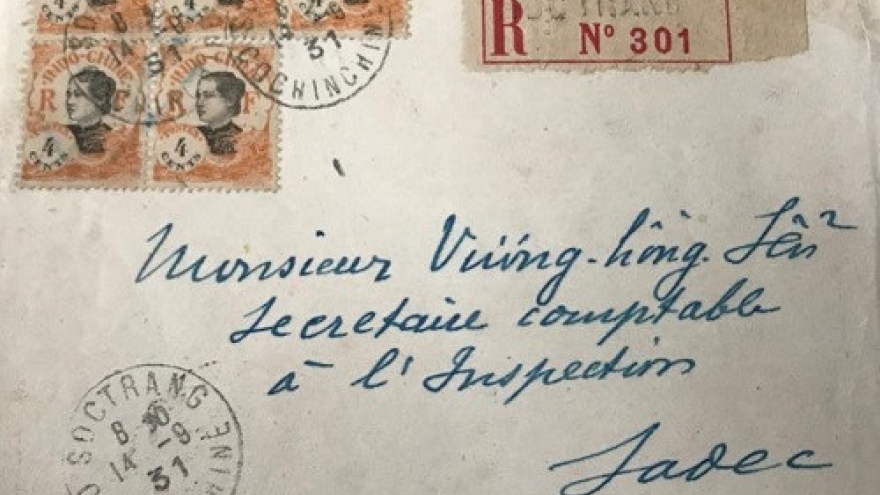 R Nº 301
INDO-CHINE
R F
4
CENTS
INDO-CHINE
R F
4
CENTS
8
14 -9
31
COCHINCHINE
Monsieur Vương-hồng-Sển
Secretaire comptable
à l'Inspection
Sadec
SOCTRANG
8 30
14 -9
31